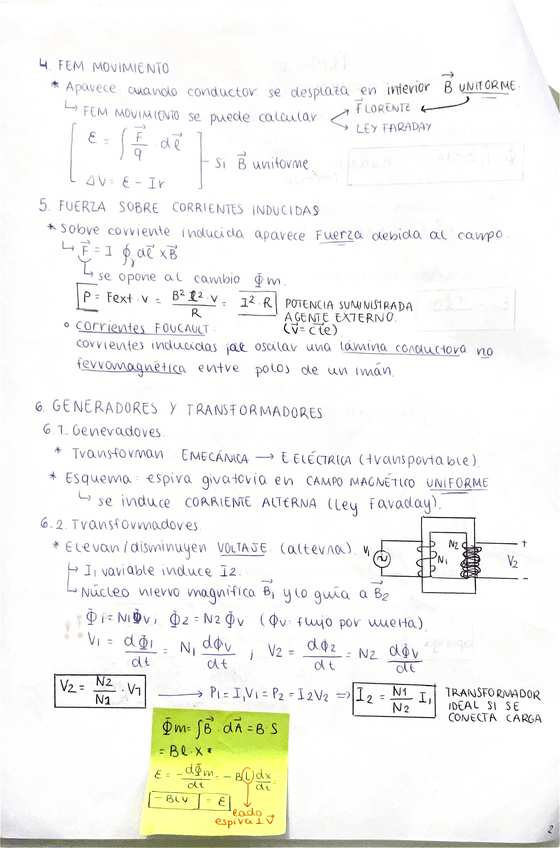 4. FEM MOVIMIENTO
* Aparece cuando conductor se desplaza en interior B⃗ UNIFORME.
↳ FEM MOVIMIENTO se puede calcular
F⃗LORENTZ
LEY FARADAY
ε = ∫ F⃗/q · dℓ⃗
Si B⃗ uniforme
ΔV = ε - Ir
5. FUERZA SOBRE CORRIENTES INDUCIDAS
* Sobre corriente inducida aparece Fuerza debida al campo.
↳ F⃗ = I ∮ dℓ⃗ x B⃗
↳ se opone al cambio Φm.
P = Fext · v = B²ℓ²·v/R = I²·R
POTENCIA SUMINISTRADA
AGENTE EXTERNO.
(v⃗ = cte)
° Corrientes FOUCAULT.
corrientes inducidas al oscilar una lámina conductora no
ferromagnética entre polos de un imán.
6. GENERADORES Y TRANSFORMADORES
6.1. Generadores
* Transforman EMECÁNICA → E.ELÉCTRICA (transportable).
* Esquema: espira giratoria en CAMPO MAGNÉTICO UNIFORME
↳ se induce CORRIENTE ALTERNA (Ley Faraday).
6.2. Transformadores
* Elevan/disminuyen VOLTAJE (alterna).
V1 N1 N2 + V2 -
↳ I1 variable induce I2.
↳ Núcleo hierro magnifica B⃗1 y lo guía a B⃗2
Φ1 = N1Φv, Φ2 = N2Φv (Φv: flujo por vuelta).
V1 = dΦ1/dt = N1 dΦv/dt ; V2 = dΦ2/dt = N2 dΦv/dt
V2 = N2/N1 · V1 → P1 = I1V1 = P2 = I2V2 ⇒ I2 = N1/N2 I1
TRANSFORMADOR
IDEAL SI SE
CONECTA CARGA
Φm = ∫B⃗ · dA⃗ = B·S
= Bℓ·x
ε = -dΦm/dt = -BL dx/dt =
-BLV = ε
lado
espira
2